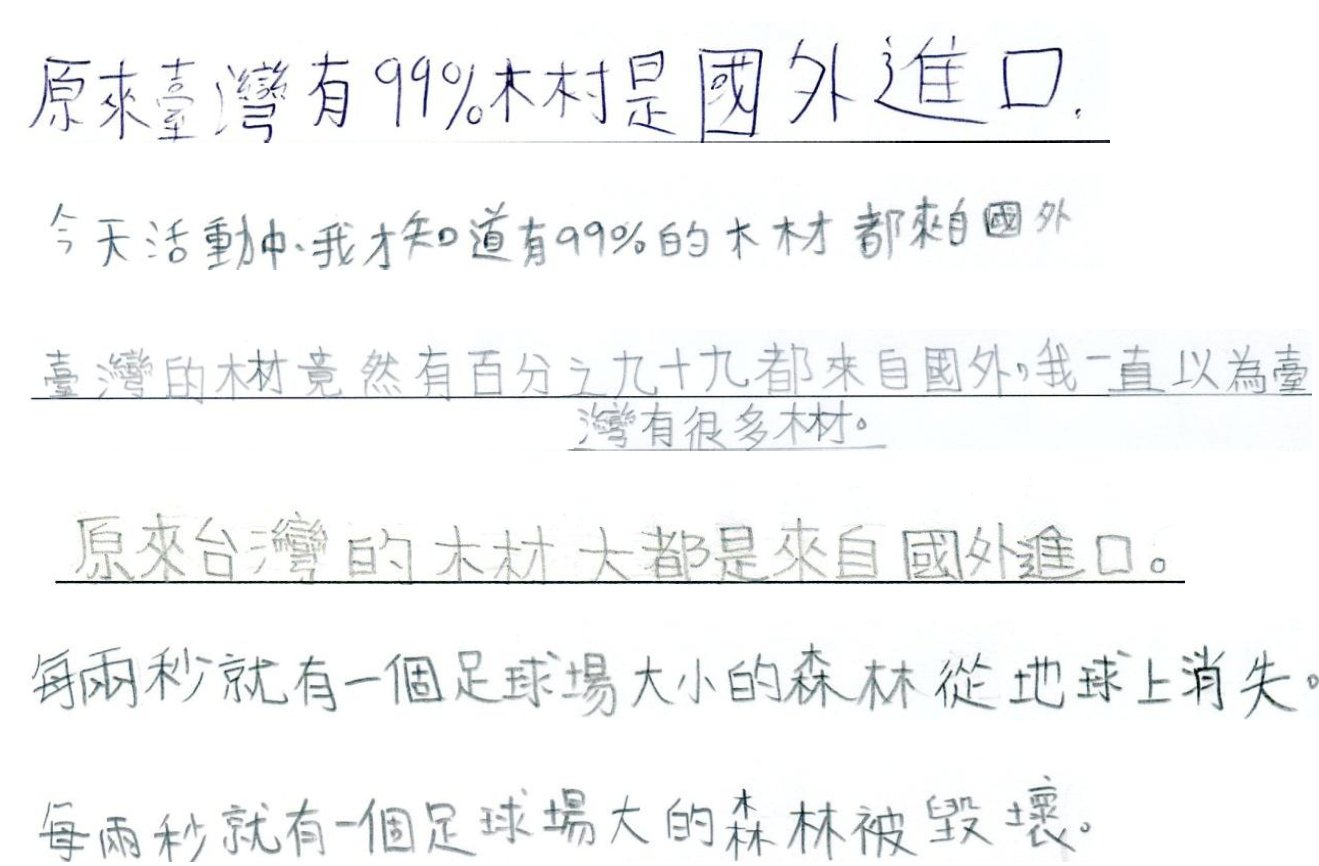 原來臺灣有99%木材是國外進口.
今天活動中、我才知道有99%的木材都來自國外
臺灣的木材竟然有百分之九十九都來自國外,我一直以為臺
灣有很多木材。
原來台灣的木材大都是來自國外進口。
每兩秒就有一個足球場大小的森林從地球上消失。
每兩秒就有一個足球場大的森林被毀壞。